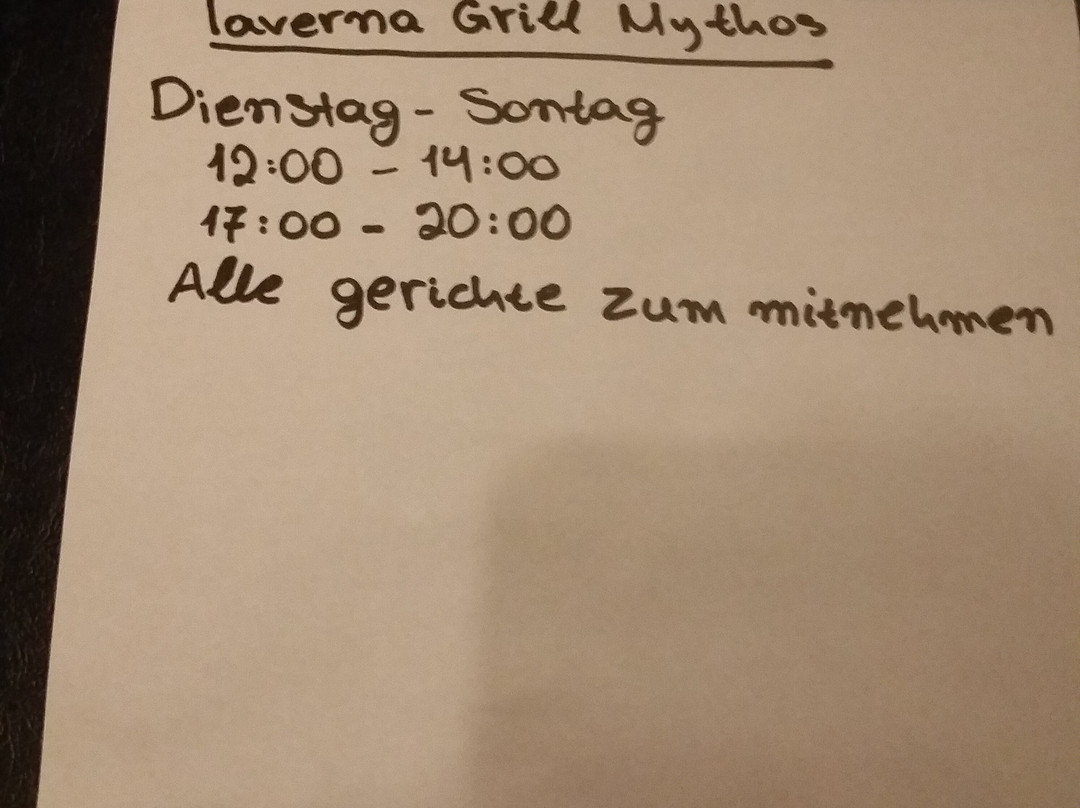 Taverna Grill Mythos
Dienstag - Sontag
12:00 - 14:00
17:00 - 20:00
Alle gerichte zum mitnehmen